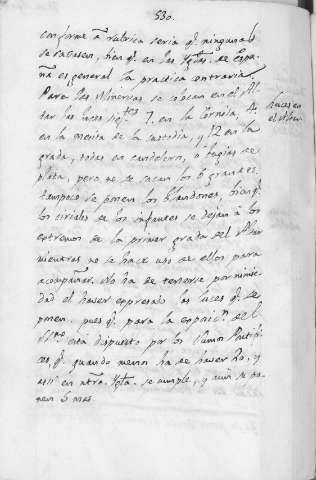 530.
conforme á rubrica seria q.^e ninguna se
se rabasen, bien q.^e en las Ygl.^as de Espa-
ña es general la practica contraria.
Para los Miserereres se colocan en el Al-
tar las luces sig.^tes 7. en la Cornisa, 4.
en la mesita de la custodia, y 12 en la
grada, todas en candeleros, ó bugias de
plata, pero no se sacan los 6 grandes.
tampoco se ponen los blandones, bien q.^e
los ciriales de los infantes se dejan á los
estremos de la primer grada del Altar
mientras no se hace uso de ellos para
acompañar. No ha de tenerse por nimie-
dad el haber expresado las luces q.^e se
ponen, pues q.^e para la exposic.^n del
SS.^mo está dispuesto por los Sumos Pontifi-
ces, q.^e quando menos ha de haber 20, y
assi en ntra. Ygla. se cumple, y aun se po-
nen 3 mas.
luces en
el Miser.^e